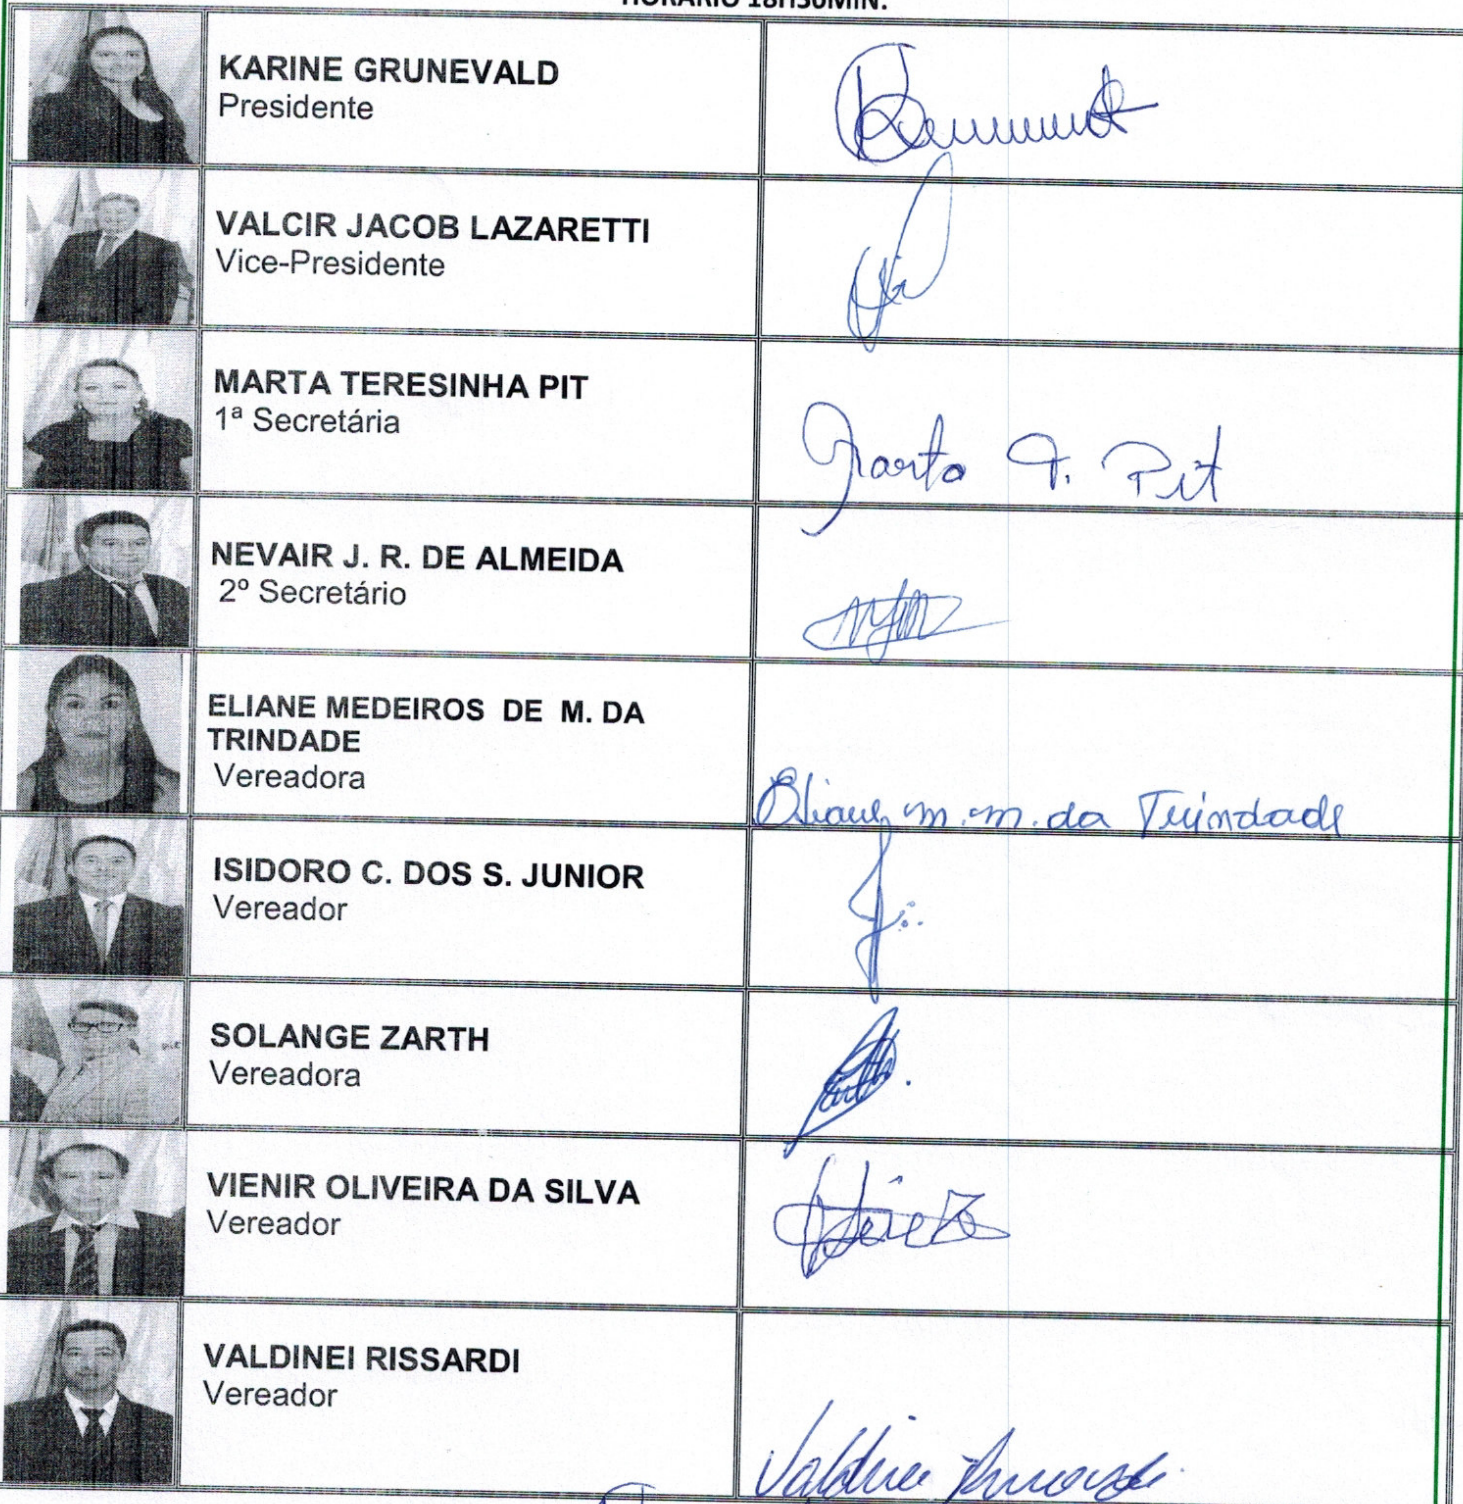 HORÁRIO 18H30MIN.
KARINE GRUNEVALD
Presidente
VALCIR JACOB LAZARETTI
Vice-Presidente
MARTA TERESINHA PIT
1ª Secretária
Marta T. Pit
NEVAIR J. R. DE ALMEIDA
2º Secretário
ELIANE MEDEIROS DE M. DA
TRINDADE
Vereadora
Eliane m. m. da Trindade
ISIDORO C. DOS S. JUNIOR
Vereador
SOLANGE ZARTH
Vereadora
VIENIR OLIVEIRA DA SILVA
Vereador
VALDINEI RISSARDI
Vereador
Valdinei